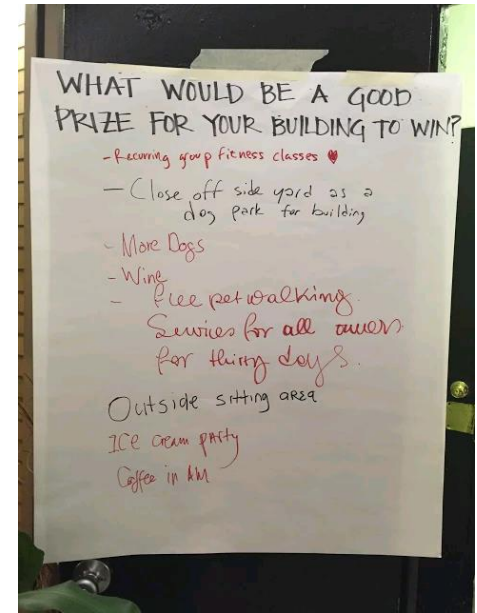 WHAT WOULD BE A GOOD
PRIZE FOR YOUR BUILDING TO WIN?
- Recurring group fitness classes ♥
- Close off side yard as a
dog park for building
- More Dogs
- Wine
- free pet walking
Services for all owners
for thirty days.
Outside sitting area
Ice cream party
Coffee in AM